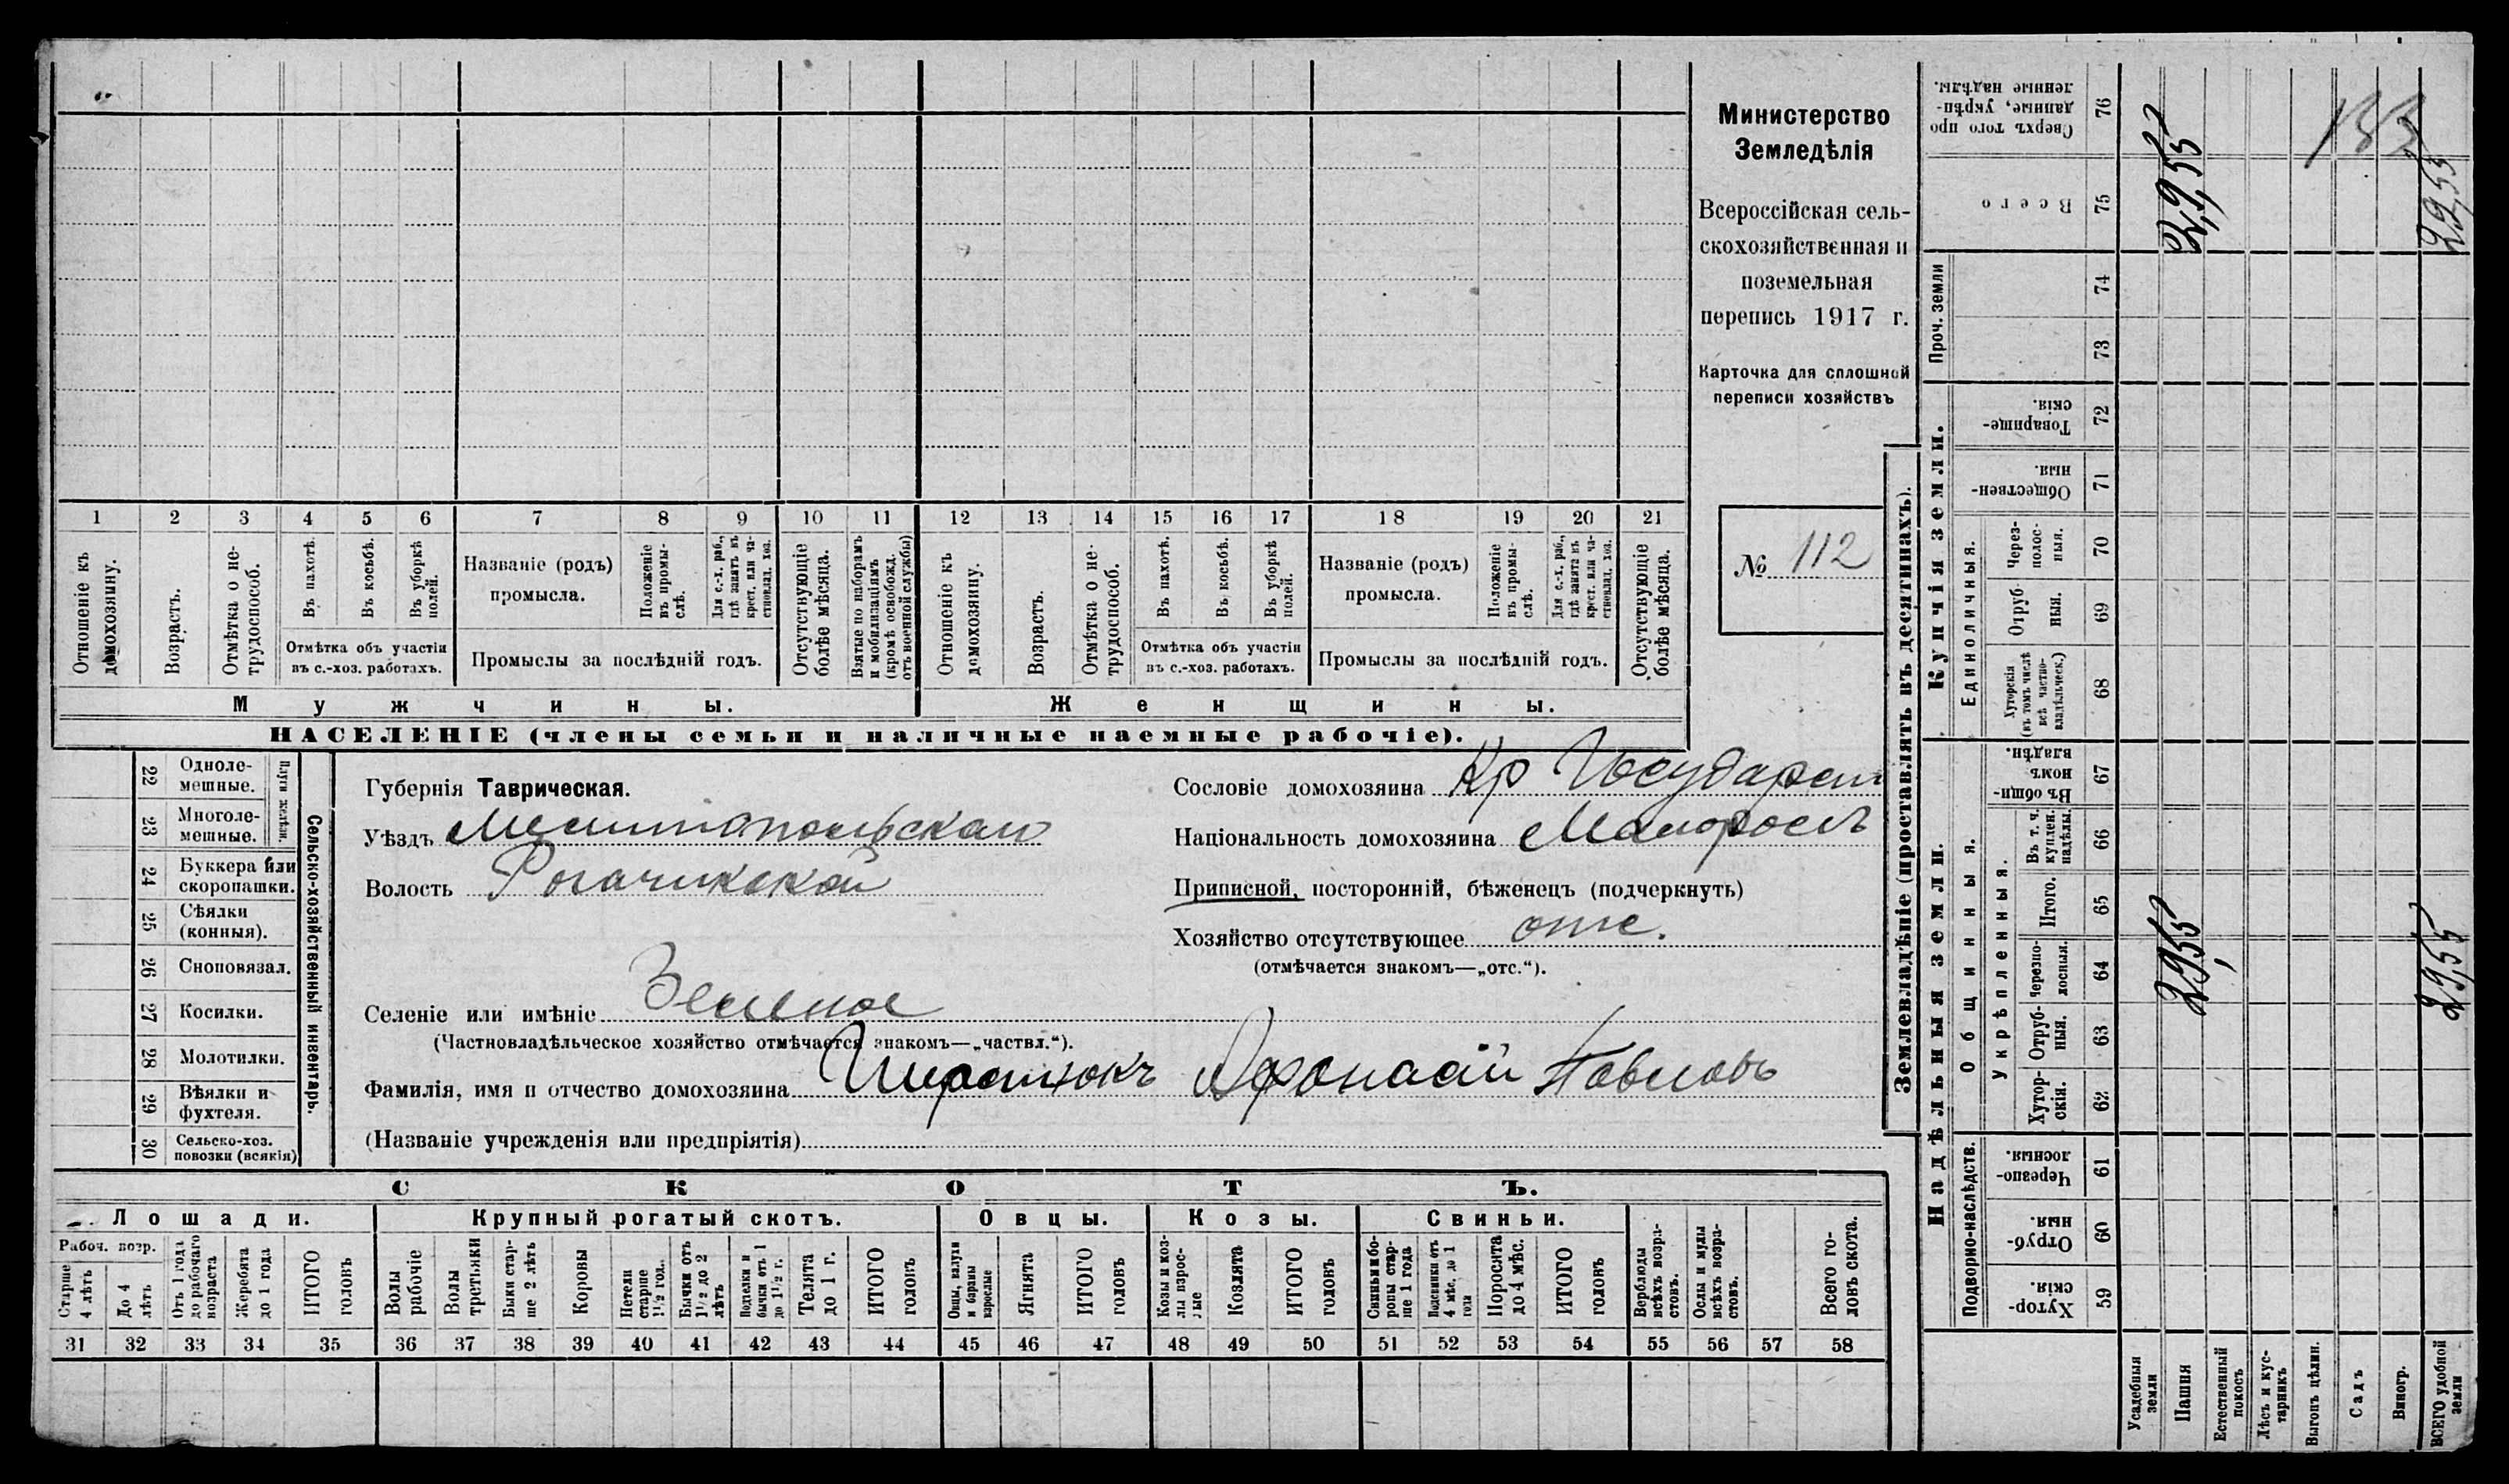 Министерство
Земледѣлія
Всероссійская сель-
скохозяйственная и
поземельная
перепись 1917 г.
Карточка для сплошной
переписи хозяйствъ
№ 112
1 2 3 4 5 6 7 8 9 10 11 12 13 14 15 16 17 18 19 20 21
Отношеніе къ домохозяину.
Возрастъ.
Отмѣтка о не-
трудоспособ.
Въ пахотѣ.
Въ косьбѣ.
Въ уборкѣ
полей.
Отмѣтка объ участіи
въ с.-хоз. работахъ.
Названіе (родъ)
промысла.
Положеніе
въ промы-
слѣ.
Для с.-х. раб.,
гдѣ занятъ въ
крест. или ча-
стновлад. хоз.
Промыслы за послѣдній годъ.
Отсутствующіе
болѣе мѣсяца.
Взятые по наборамъ
и мобилизаціямъ
(кромѣ освобожд.
отъ военной службы)
Отношеніе къ
домохозяину.
Возрастъ.
Отмѣтка о не-
трудоспособ.
Въ пахотѣ.
Въ косьбѣ.
Въ уборкѣ
полей.
Отмѣтка объ участіи
въ с.-хоз. работахъ.
Названіе (родъ)
промысла.
Положеніе
въ промы-
слѣ.
Для с.-х. раб.,
гдѣ занята въ
крест. или ча-
стновлад. хоз.
Промыслы за послѣдній годъ.
Отсутствующіе
болѣе мѣсяца.
Мужчины.
Женщины.
НАСЕЛЕНІЕ (члены семьи и наличные наемные рабочіе).
Сельско-хозяйственный инвентарь.
Плуги желѣзн.
22 Одноле-
мешные.
23 Многоле-
мешные.
24 Буккера или
скоропашки.
25 Сѣялки
(конныя).
26 Сноповязал.
27 Косилки.
28 Молотилки.
29 Вѣялки и
фухтеля.
30 Сельско-хоз.
повозки (всякія)
Губернія Таврическая.
Уѣздъ Мелитопольскаго
Волость Рогачикской
Сословіе домохозяина Кр Государст
Національность домохозяина Малороссъ
Приписной, посторонній, бѣженецъ (подчеркнуть)
Хозяйство отсутствующее отс.
(отмѣчается знакомъ—„отс.“).
Селеніе или имѣніе Зеленое
(Частновладѣльческое хозяйство отмѣчается знакомъ—„частвл.“).
Фамилія, имя и отчество домохозяина Афонасій Павловъ
(Названіе учрежденія или предпріятія)
СКОТЪ.
Лошади.
Крупный рогатый скотъ.
Овцы.
Козы.
Свиньи.
Рабоч. возр.
Старше
4 лѣтъ
До 4
лѣтъ
Отъ 1 года
до рабочаго
возраста
Жеребята
до 1 года
ИТОГО
головъ
Волы
рабочіе
Волы
третьяки
Быки стар-
ше 2 лѣтъ
Коровы
Нетели
старше
1½ год.
Бычки отъ
1½ до 2
лѣтъ
Подтелки и
бычки отъ 1
до 1½ г.
Телята
до 1 г.
ИТОГО
головъ
Овцы, валухи
и бараны
взрослые
Ягнята
ИТОГО
головъ
Козы и коз-
лы взрос-
лые
Козлята
ИТОГО
головъ
Свиньи и бо-
ровы стар-
ше 1 года
Подсвинки отъ
4 мѣс. до 1
года
Поросята
до 4 мѣс.
ИТОГО
головъ
Верблюды
всѣхъ возра-
стовъ.
Ослы и мулы
всѣхъ возра-
стовъ.
Всего го-
ловъ скота.
31 32 33 34 35 36 37 38 39 40 41 42 43 44 45 46 47 48 49 50 51 52 53 54 55 56 57 58
Землевладѣніе (проставлять въ десятинахъ).
Купчія земли.
Надѣльныя земли.
Проч. земли
Единоличныя.
Общинныя.
Укрѣпленныя.
Подворно-наслѣдств.
Сверхъ того про
данные, укрѣп-
ленные надѣлы.
76
Всего
75
74
73
Товарище-
скія.
72
Обществен-
ныя.
71
Через-
полос-
ныя.
70
Отруб-
ныя.
69
Хуторскія
(въ томъ числѣ
всѣ частно-
владѣльческ.)
68
Въ общи-
номъ
владѣн.
67
Въ т. ч.
куплен.
надѣлы.
66
Итого.
65
Черезпо-
лосныя.
64
Отруб-
ныя.
63
Хутор-
скія.
62
Черезпо-
лосныя.
61
Отруб-
ныя.
60
Хутор-
скія
59
Усадебныя
земли
Пашня
Естественный
покосъ
Лѣсъ и кус-
тарникъ
Выгонъ цѣлин.
Садъ
Виногр.
ВСЕГО удобной
земли
183